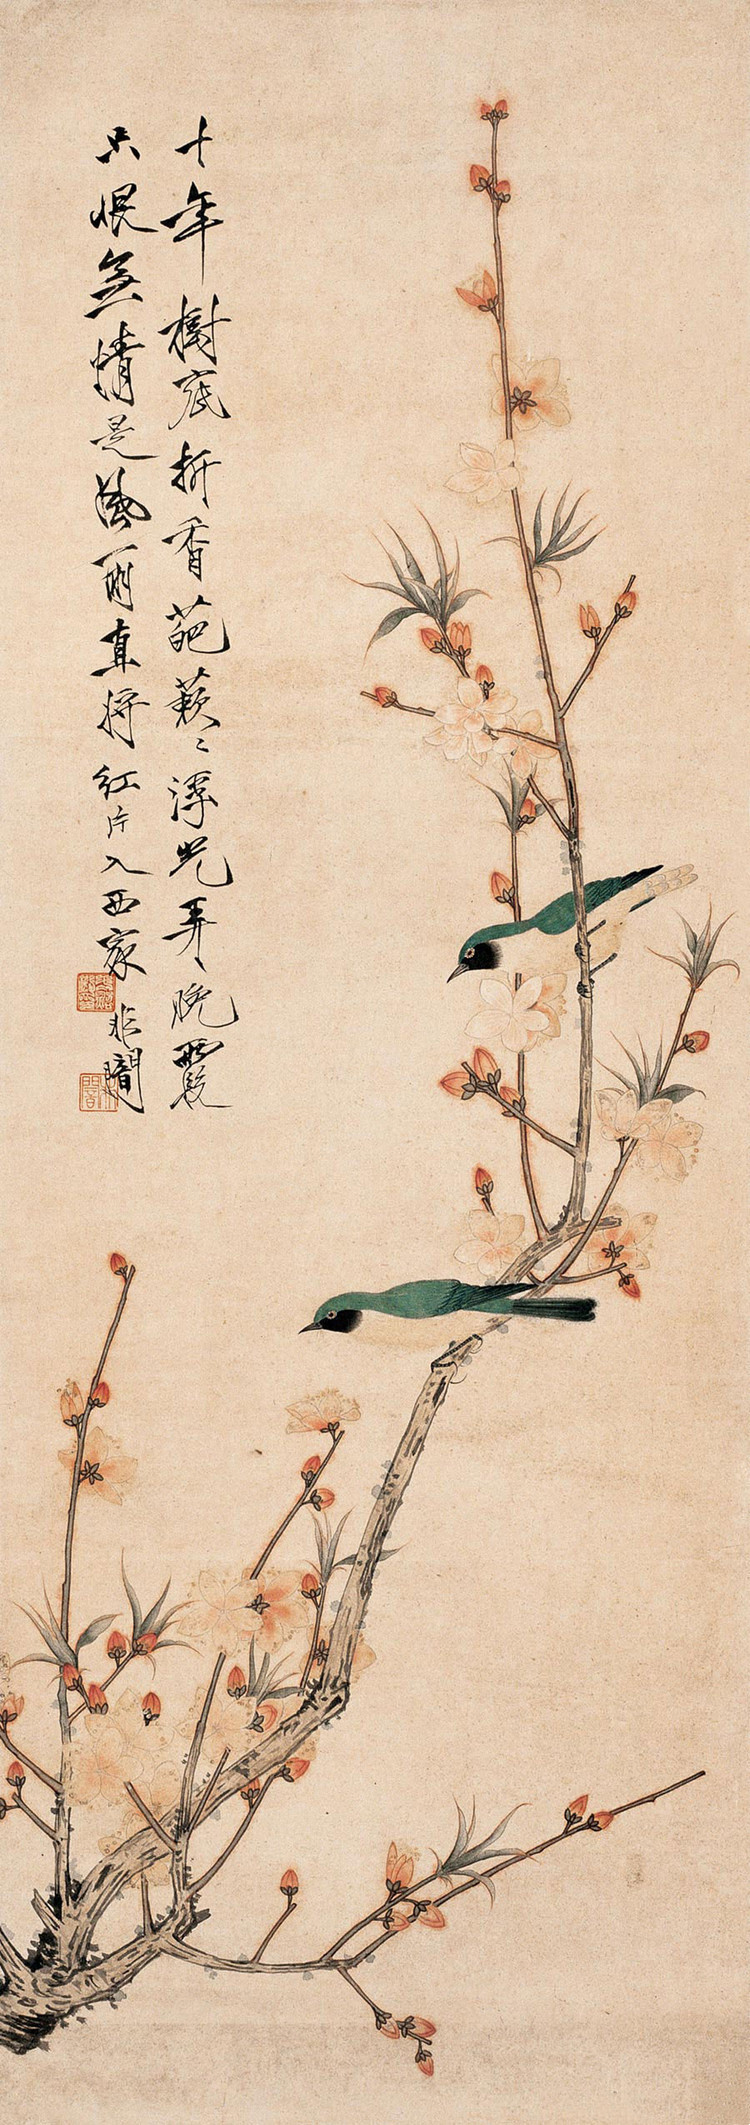 十年樹底折香葩蔌〻浮光弄〻晩霞
只恨無情是風雨直將紅片入西家 非闇